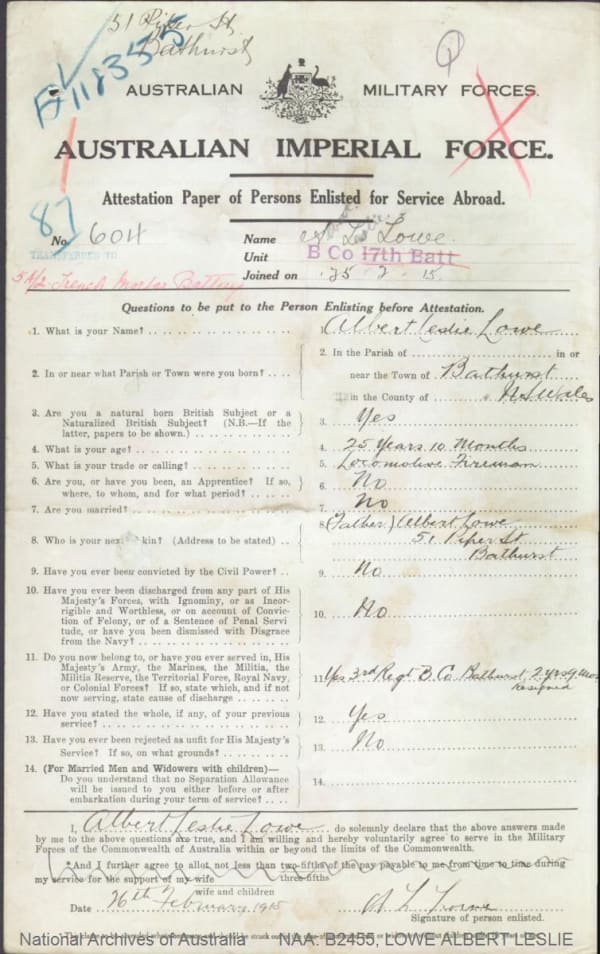 51 Piper St
Bathurst
AUSTRALIAN MILITARY FORCES.
AUSTRALIAN IMPERIAL FORCE.
Attestation Paper of Persons Enlisted for Service Abroad.
87
No. 604
Name A L Lowe
TRANSFERRED TO
Unit B Co 17th Batt
5 A/2 Trench Mortar Battery
Joined on 25 . 2 . 15
Questions to be put to the Person Enlisting before Attestation.
1. What is your Name? 1. Albert Leslie Lowe
2. In or near what Parish or Town were you born? 2. In the Parish of in or
near the Town of Bathurst
in the County of N. S Wales
3. Are you a natural born British Subject or a
Naturalized British Subject? (N.B.—If the
latter, papers to be shown.) 3. Yes
4. What is your age? 4. 25 Years 10 Months
5. What is your trade or calling? 5. Locomotive Fireman
6. Are you, or have you been, an Apprentice? If so,
where, to whom, and for what period? 6. No
7. Are you married? 7. No
8. Who is your next kin? (Address to be stated) 8. (Father) Albert Lowe
51 Piper St
Bathurst
9. Have you ever been convicted by the Civil Power? 9. No
10. Have you ever been discharged from any part of His
Majesty's Forces, with Ignominy, or as Incor-
rigible and Worthless, or on account of Convic-
tion of Felony, or of a Sentence of Penal Servi
tude, or have you been dismissed with Disgrace
from the Navy? 10. No
11. Do you now belong to, or have you ever served in, His
Majesty's Army, the Marines, the Militia, the
Militia Reserve, the Territorial Force, Royal Navy,
or Colonial Forces? If so, state which, and if not
now serving, state cause of discharge 11. Yes 3rd Regt B. Co Bathurst, 2 yrs 9 mos
Resigned
12. Have you stated the whole, if any, of your previous
service? 12. Yes
13. Have you ever been rejected as unfit for His Majesty's
Service? If so, on what grounds? 13. No
14. (For Married Men and Widowers with children)—
Do you understand that no Separation Allowance
will be issued to you either before or after
embarkation during your term of service? 14.
I, Albert Leslie Lowe do solemnly declare that the above answers made
by me to the above questions are true, and I am willing and hereby voluntarily agree to serve in the Military
Forces of the Commonwealth of Australia within or beyond the limits of the Commonwealth.
*And I further agree to allot not less than two-fifths of the pay payable to me from time to time during
three-fifths
my service for the support of my wife
wife and children
Date 26th February 1915 A L Lowe
Signature of person enlisted.
National Archives of Australia NAA: B2455, LOWE ALBERT LESLIE